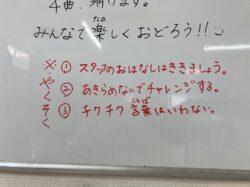 4曲、踊ります。
みんなで楽しくおどろう!!
※やくそく
① スタッフのおはなしはききましょう。
② あきらめないでチャレンジする。
③ チクチク言葉はいわない。